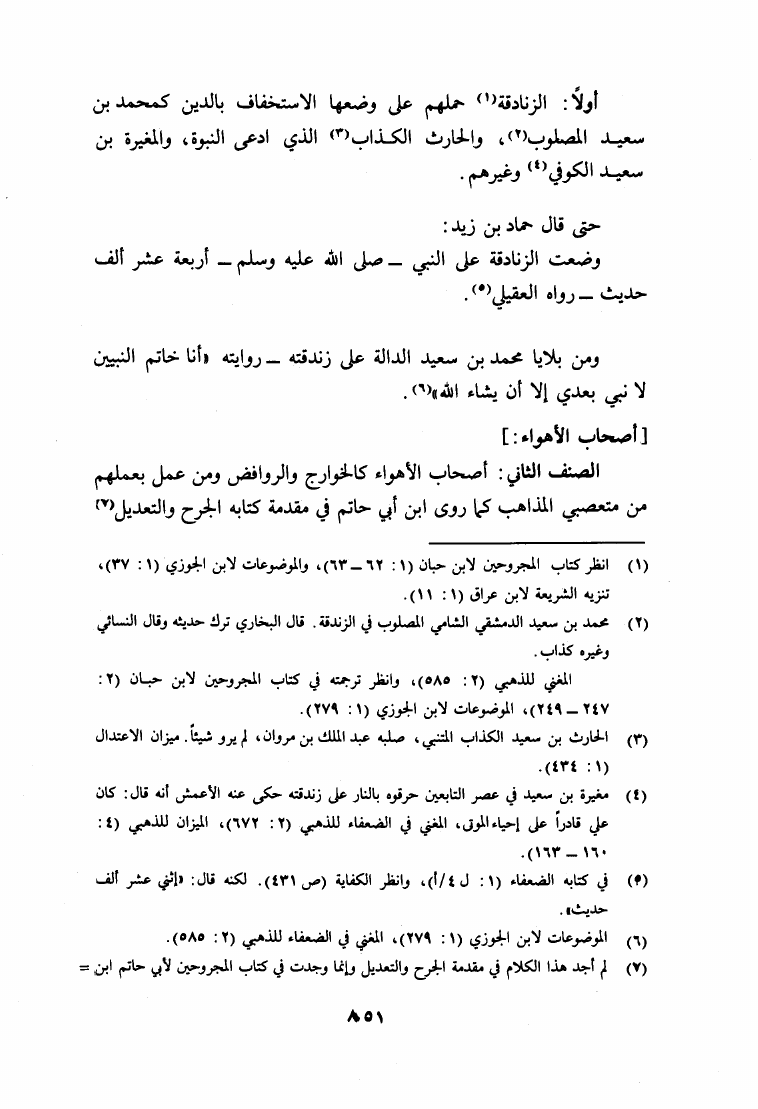 أولاً: الزنادقة(١) حملهم على وضعها الاستخفاف بالدين كمحمد بن
سعيد المصلوب(٢)، والحارث الكذاب(٣) الذي ادعى النبوة، والمغيرة بن
سعيد الكوفي(٤) وغيرهم.
حتى قال حماد بن زيد:
وضعت الزنادقة على النبي ــ صلى الله عليه وسلم ــ أربعة عشر ألف
حديث ــ رواه العقيلي(٥).
ومن بلايا محمد بن سعيد الدالة على زندقته ــ روايته «أنا خاتم النبيين
لا نبي بعدي إلا أن يشاء الله»(٦).
[أصحاب الأهواء:]
الصنف الثاني: أصحاب الأهواء كالخوارج والروافض ومن عمل بعملهم
من متعصبي المذاهب كما روى ابن أبي حاتم في مقدمة كتابه الجرح والتعديل(٧)
(١) انظر كتاب المجروحين لابن حبان (١: ٦٢ ــ ٦٣)، والموضوعات لابن الجوزي (١: ٣٧)،
تنزيه الشريعة لابن عراق (١: ١١).
(٢) محمد بن سعيد الدمشقي الشامي المصلوب في الزندقة. قال البخاري ترك حديثه وقال النسائي
وغيره كذاب.
المغني للذهبي (٢: ٥٨٥)، وانظر ترجمته في كتاب المجروحين لابن حبان (٢:
٢٤٧ ــ ٢٤٩)، الموضوعات لابن الجوزي (١: ٢٧٩).
(٣) الحارث بن سعيد الكذاب المتنبي، صلبه عبد الملك بن مروان، لم يرو شيئاً. ميزان الاعتدال
(١: ٤٣٤).
(٤) مغيرة بن سعيد في عصر التابعين حرقوه بالنار على زندقته حكى عنه الأعمش أنه قال: كان
علي قادراً على إحياء الموتى، المغني في الضعفاء للذهبي (٢: ٦٧٢)، الميزان للذهبي (٤:
١٦٠ ــ ١٦٣).
(٥) في كتابه الضعفاء (١: ل ٤/أ)، وانظر الكفاية (ص ٤٣١). لكنه قال: «إثني عشر ألف
حديث».
(٦) الموضوعات لابن الجوزي (١: ٢٧٩)، المغني في الضعفاء للذهبي (٢: ٥٨٥).
(٧) لم أجد هذا الكلام في مقدمة الجرح والتعديل وإنما وجدت في كتاب المجروحين لأبي حاتم ابن =
٨٥١